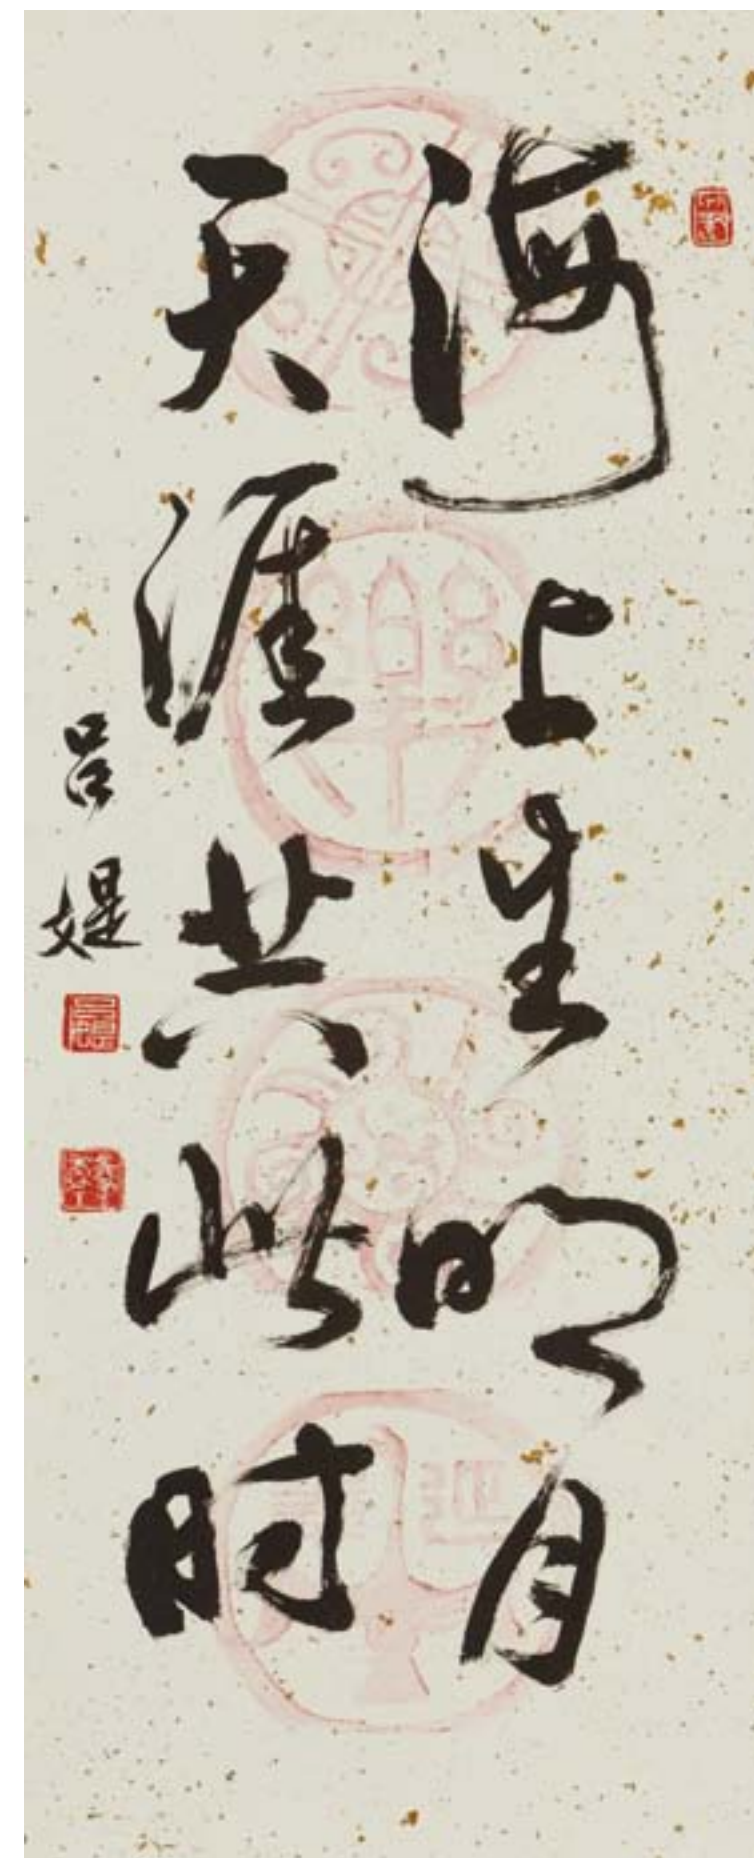 海上生明月
天涯共此时
吕媞